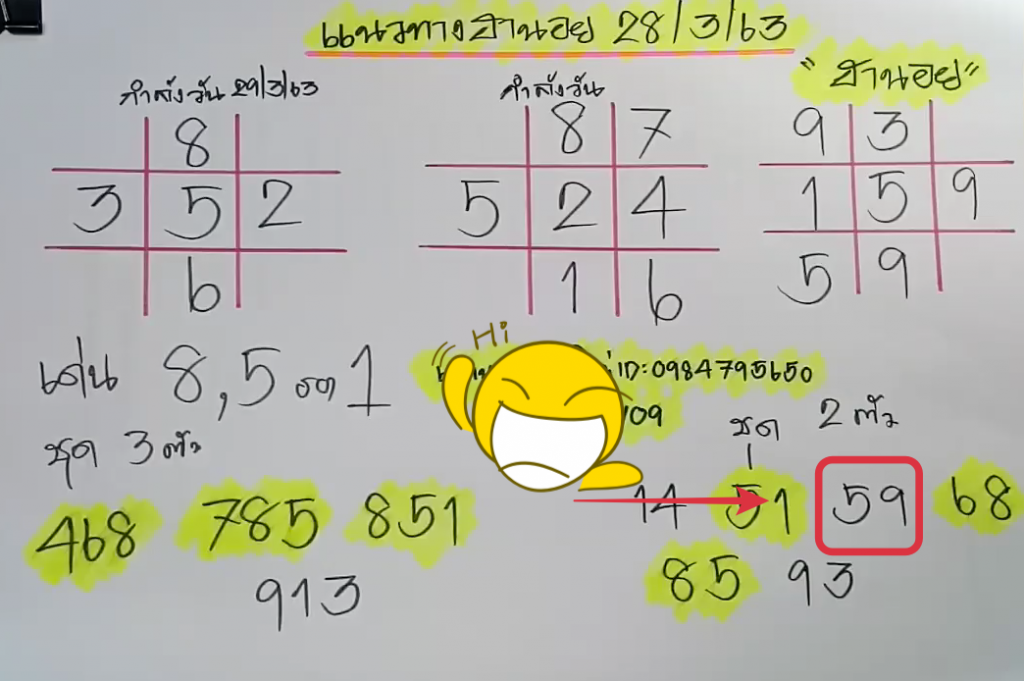 แนวทางฮานอย 28/3/63
"ฮานอย"
กำลังวัน 29/3/63
8
3 5 2
6
กำลังวัน
8 7
5 2 4
1 6
9 3
1 5 9
5 9
เด่น 8,5 รอง 1
ชุด 3 ตัว
468 785 851
913
Hi
ID:0984795650
09
ชุด 2 ตัว
14 51 59 68
85 93